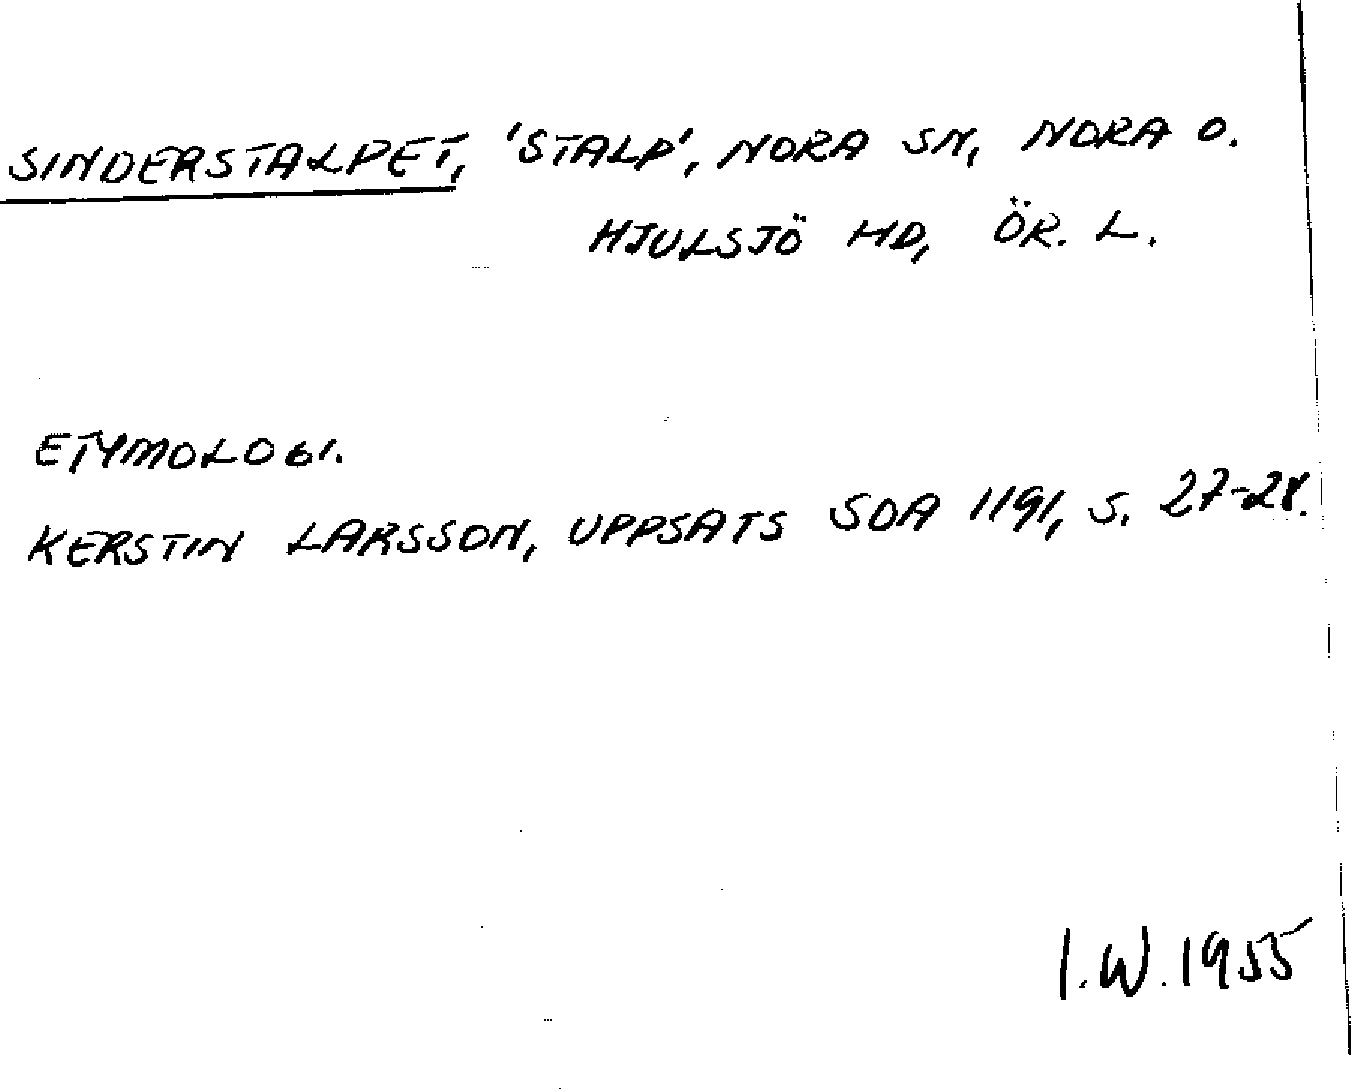 SINDERSTALPET, 'STALP', NORA SN, NORA O.
HJULSJÖ HD, ÖR. L.
ETYMOLOGI.
KERSTIN LARSSON, UPPSATS SOA 1191, S. 27-28.
I.W. 1955